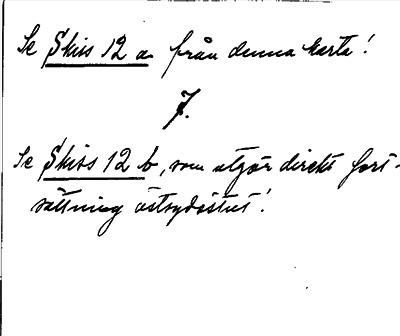 Se Skiss 12 a från denna karta!
7.
Se Skiss 12 b, som utgör direkt fort-
sättning ostsydostut!